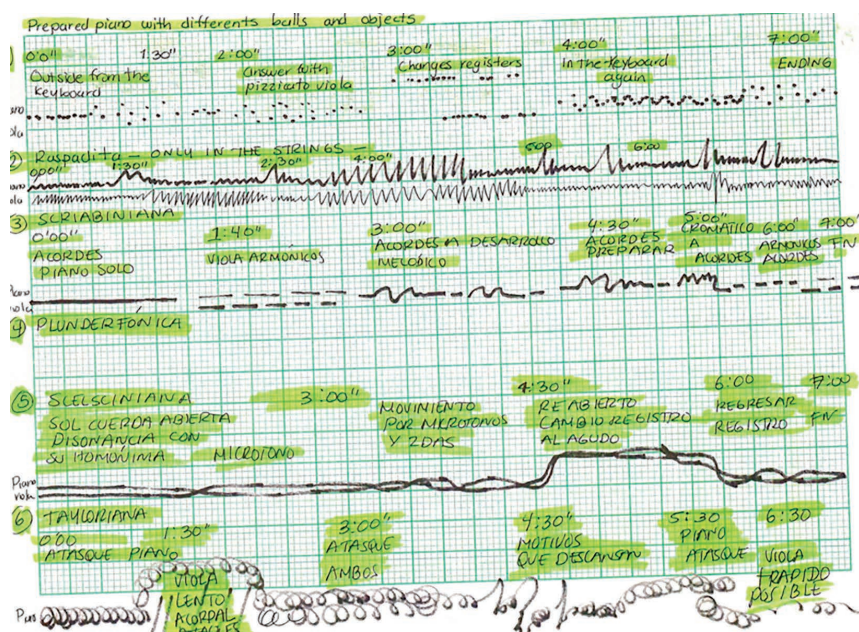 Prepared piano with differents balls and objects
0'0" 1'30" 2'00" 3'00" 4'00" 7'00"
Outside from the keyboard
answer with pizzicato viola
Changes registers
In the keyboard again
ENDING
2 Raspadita - ONLY IN THE STRINGS -
0'00" 1'30" 2'30" 4'00" 6:00
3 SCRIABINIANA
0'00" 1'40" 3'00" 4'30" 5'00" 6'00" 7'00"
ACORDES PIANO SOLO
VIOLA ARMÓNICOS
ACORDES A DESARROLLO MELÓDICO
ACORDES PREPARAR
CROMATICO A ACORDES
ARMONICOS ACORDES
FN
Piano
4) PLUNDERFÓNICA
5 SCELSCINIANA 3'00" 4'30" 6'00 7'00
SOL CUERDA ABIERTA
DISONANCIA CON
SU HOMÓNIMA
MICROTONO
MOVINIENTO
POR MICROTONOS
Y 2DAS
RE ABIERTO
CAMBIO REGISTRO
AL AGUDO
REGRESAR
REGISTRO
FN
Piano
viola
6) TAYLORIANA
0'00 1'30" 3'00" 4'30" 5'30 6'30
ATASQUE PIANO
VIOLA
LENTO
ACORDAL
ATASQUE
AMBOS
MOTIVOS
QUE DESCANSAN
PIANO
ATASQUE
VIOLA
+ RAPIDO
POSIBLE